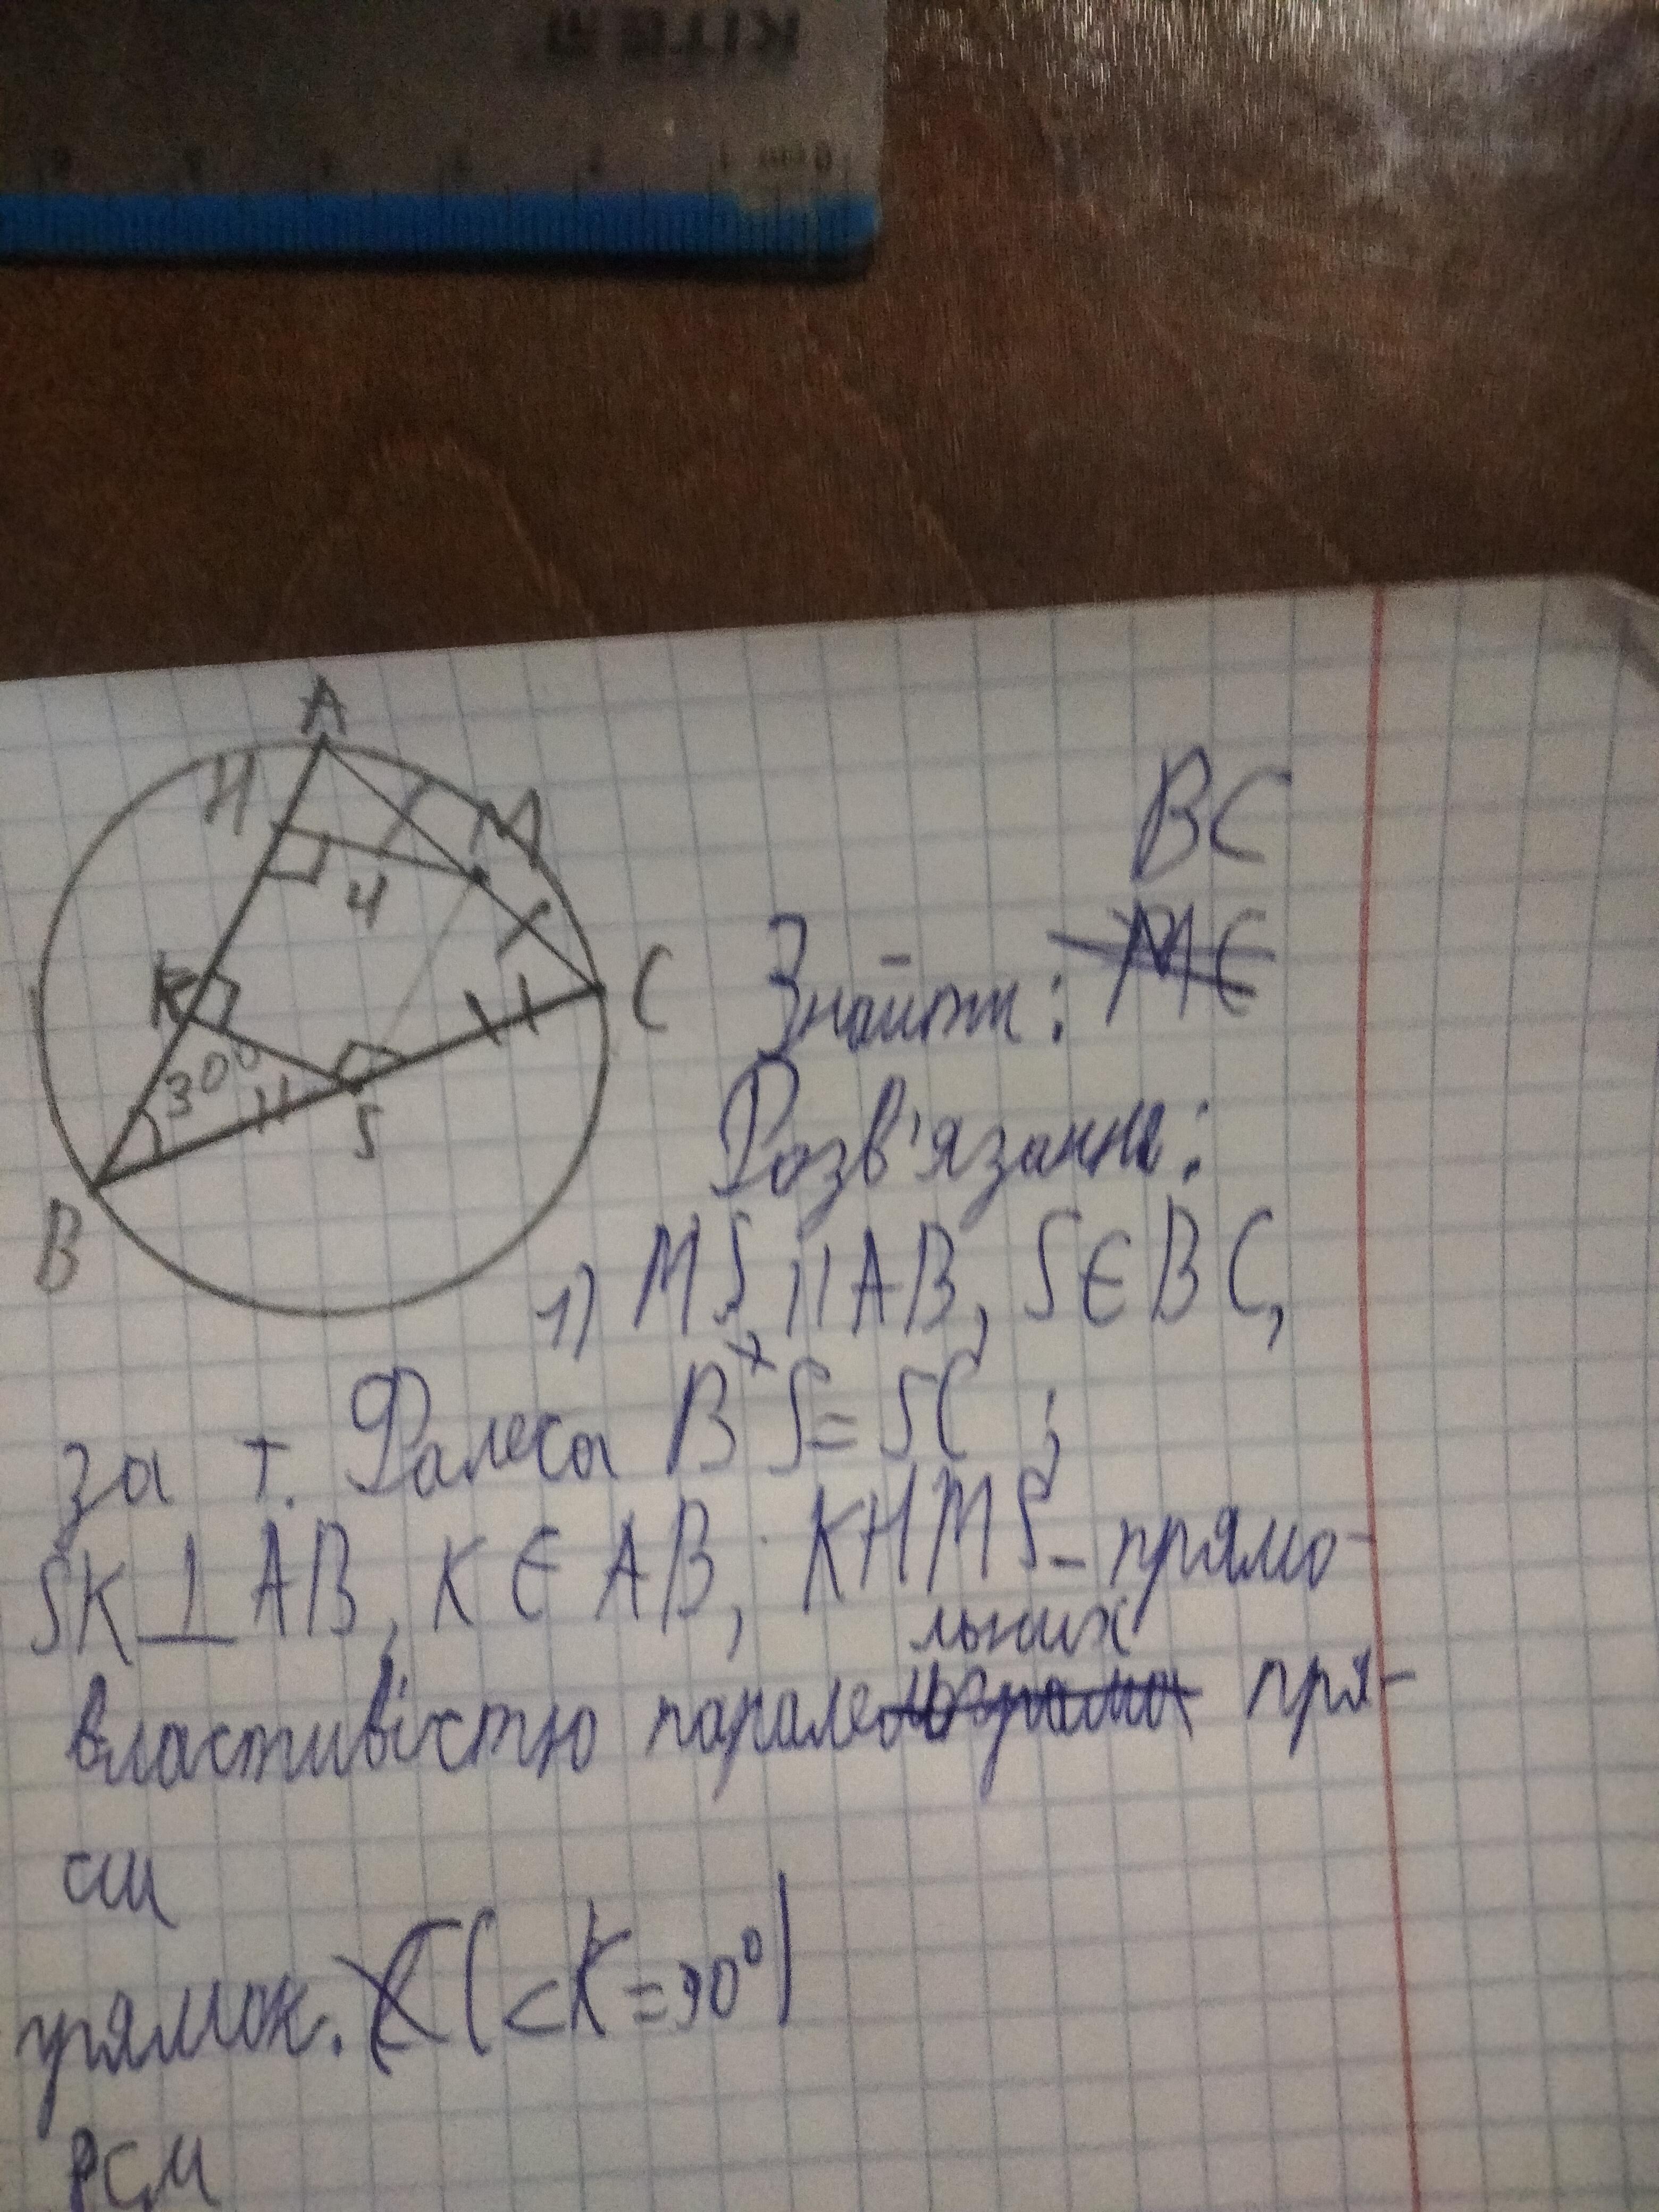 KITE
A
H
M
4
K
C
30°
S
B
BC
Знайти:
Розв'язання:
1) MS || AB, S ∈ BC,
за т. Фалеса BS = SC ;
SK ⊥ AB, K ∈ AB, KHMS – прямо-
льних
властивістю парале пря-
см
прямок. (<K = 90°)
8см